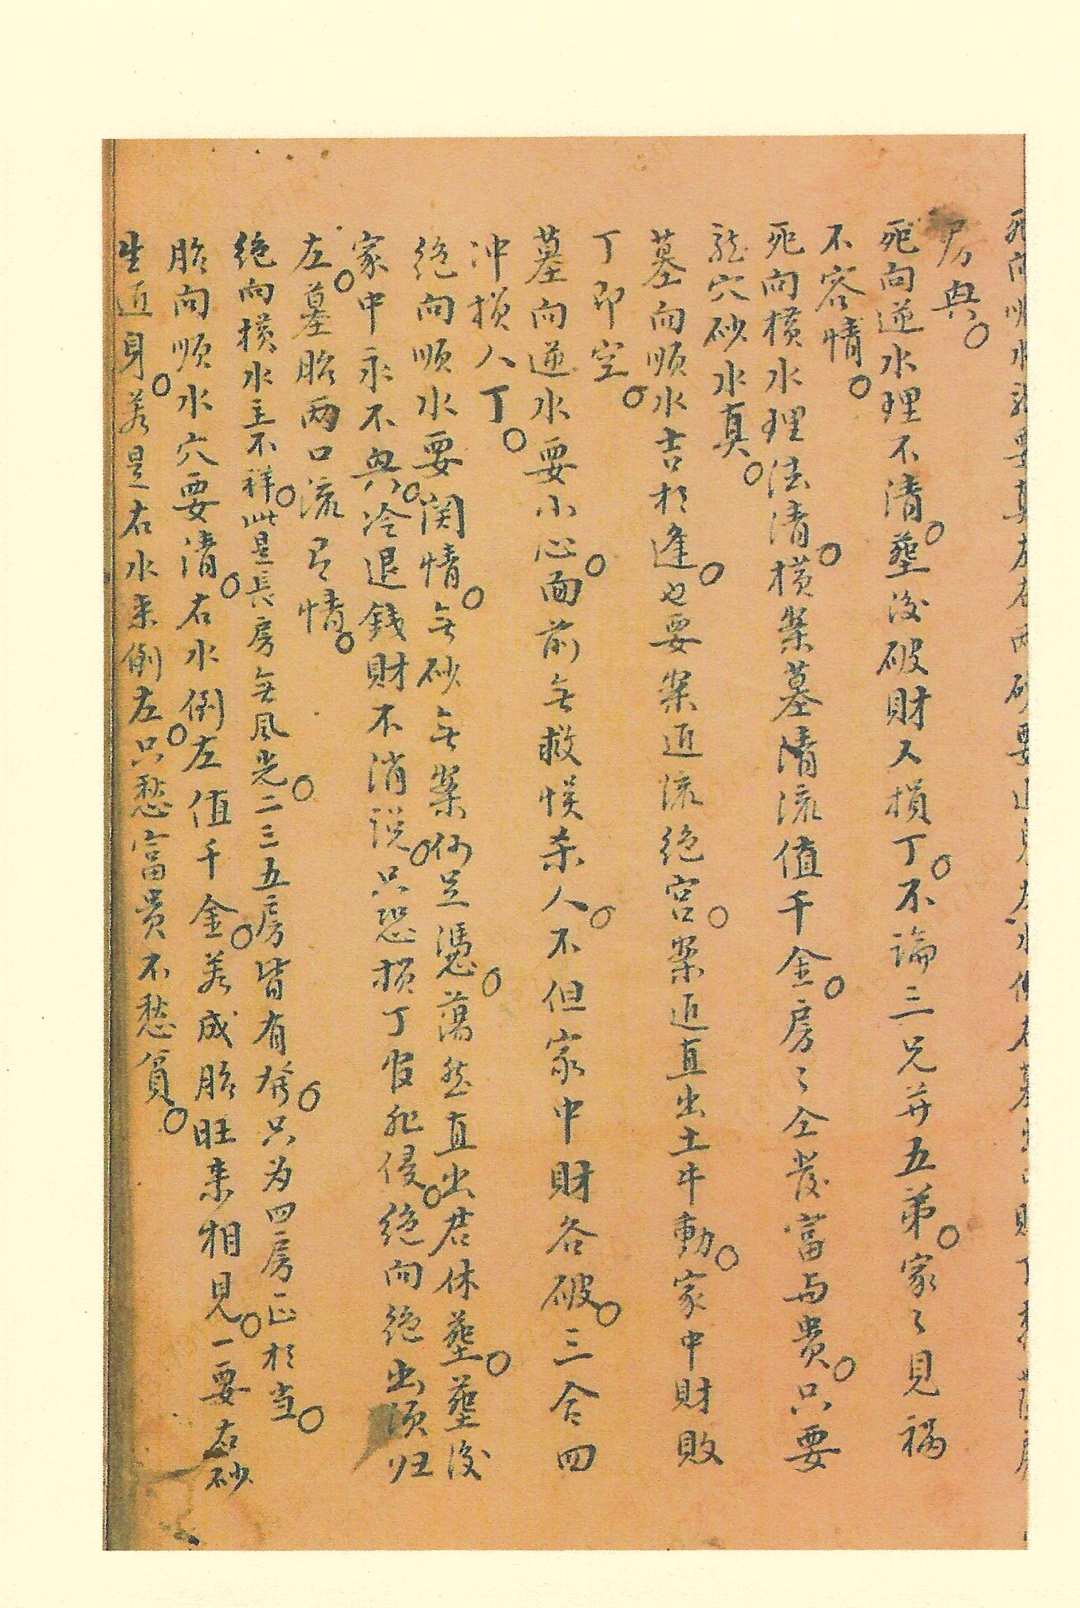 死向順水龍要真左右兩砂要
房興
死向逆水理不清葬後破財又損丁不論三兄并五弟家々見禍
不容情
死向横水理法清横案墓清流值千金房々全發富与貴只要
龍穴砂水真
墓向順水吉於逢也要案逼流絶宫案逼直出土牛動家中財敗
丁即空
墓向逆水要小心面前无救悮杀人不但家中財谷破三合四
冲損人丁
絶向順水要関情无砂无案何足憑蕩然直出君休葬葬後
家中永不興冷退錢財不消說只恐損丁官非侵絶向絶出須归
左墓胎两口流有情
絶向横水主不祥此是長房无風光二三五房皆有發只为四房正於当
胎向順水穴要清右水倒左值千金若成胎旺来相見一要右砂
生逼身若是右水来倒左只愁富贵不愁貧